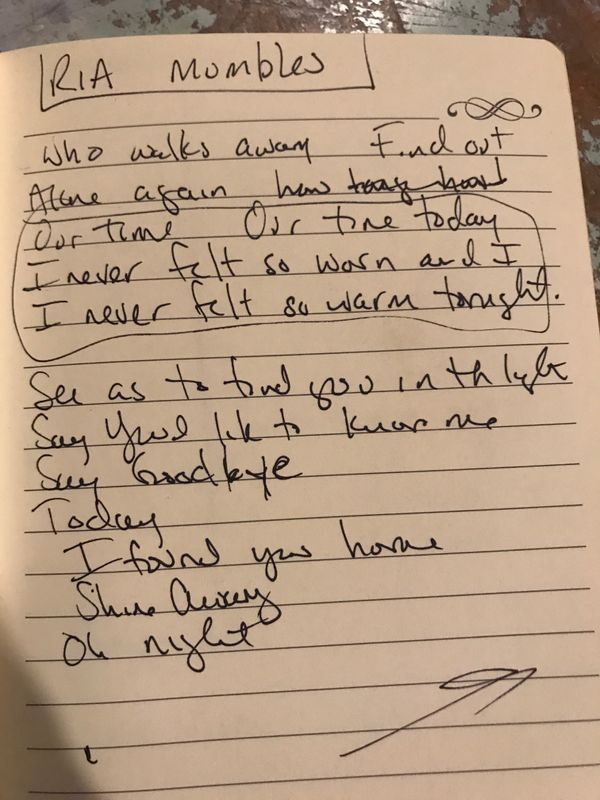 RIA Mumbles
Who walks away Find out
Alone again how
Our time Our time today
I never felt so worn and I
I never felt so warm tonight.
See as to find you in th light
Say You'd lik to know me
Say Goodbye
Today
I found your home
Shine Away
Oh night